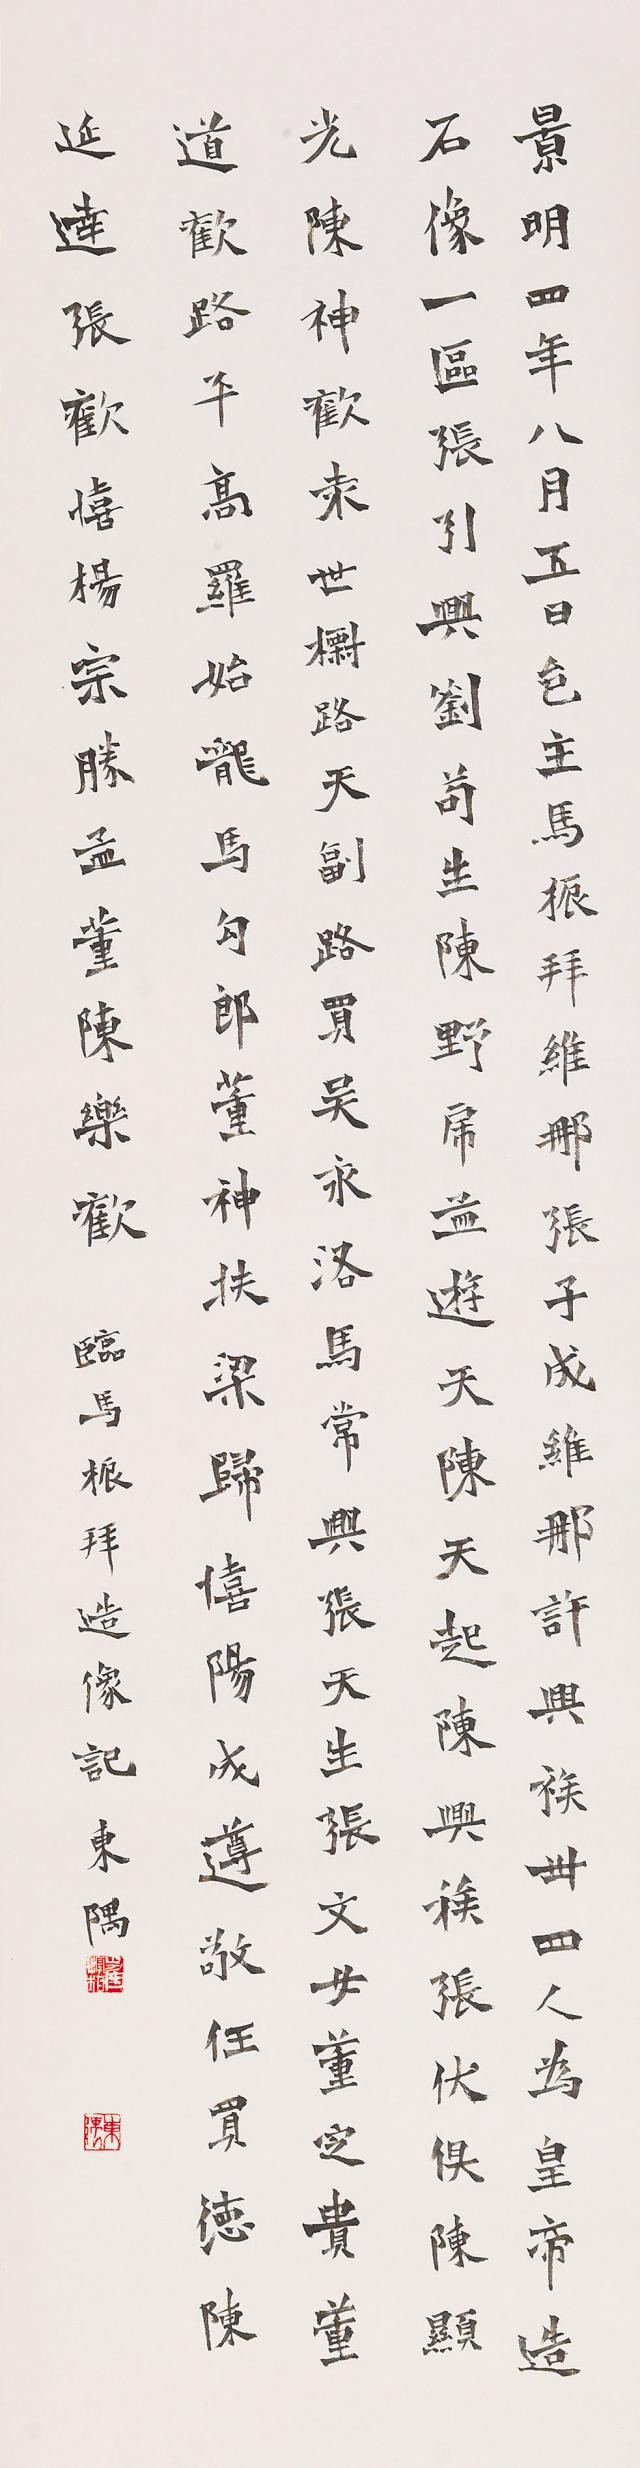 景明四年八月五日邑主馬振拜維那張子成維那許興族丗四人為皇帝造
石像一區張引興劉苟生陳野虎孟遊天陳天起陳興族張伏俱陳顯
光陳神歡朱世樹路天副路買吴永洛馬常興張天生張文女董定貴董
道歡路平高羅始龍馬勾郎董神扶梁歸僖陽成遵敬任買德陳
延達張歡憘楊宗勝孟董陳樂歡
臨馬振拜造像記 東隅